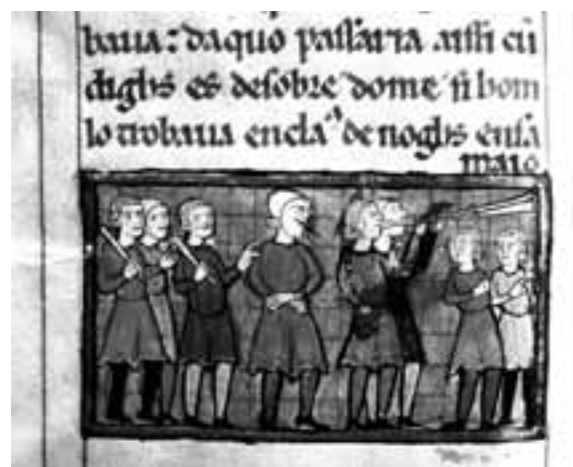 baua: daquo passaria aissi cū
digh̄s es desobre dome si hom
lo trobaua encla de nogh̄s ensa
maio